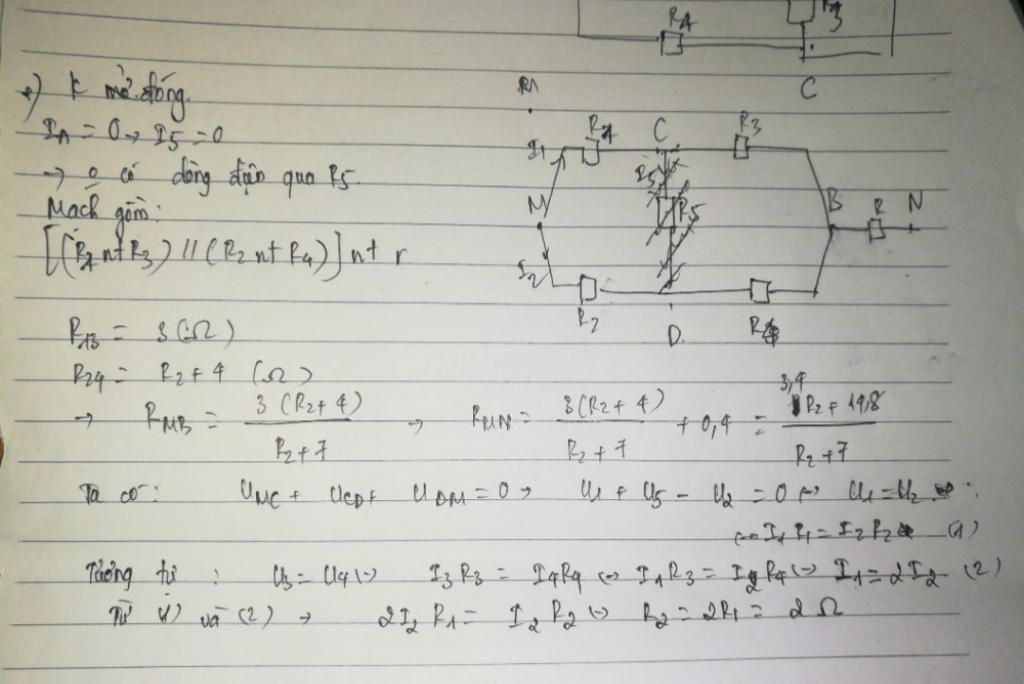 R4
R3
*) K mở đóng.
I_A = 0 → I5 = 0
→ 0 có dòng điện qua R5.
Mạch gồm:
[(R1 nt R3) // (R2 nt R4)] nt r
C
R1 C R3
I1
I5
R5
M B R N
I2
R2 D
R13 = 3 (Ω)
R24 = R2 + 4 (Ω)
→ R_MB = 3 (R2 + 4) / (R2 + 7) → R_MN = 3 (R2 + 4) / (R2 + 7) + 0,4 = (3,4 R2 + 14,8) / (R2 + 7)
Ta có: U_MC + U_CD + U_DM = 0 → U1 + U5 - U2 = 0 ↔ U1 = U2
↔ I1 R1 = I2 R2 (1)
Tương tự : U3 = U4 ↔ I3 R3 = I4 R4 ↔ I1 R3 = I2 R4 ↔ I1 = 2 I2 (2)
Từ (1) và (2) → 2 I2 R1 = I2 R2 ↔ R2 = 2R1 = 2 Ω